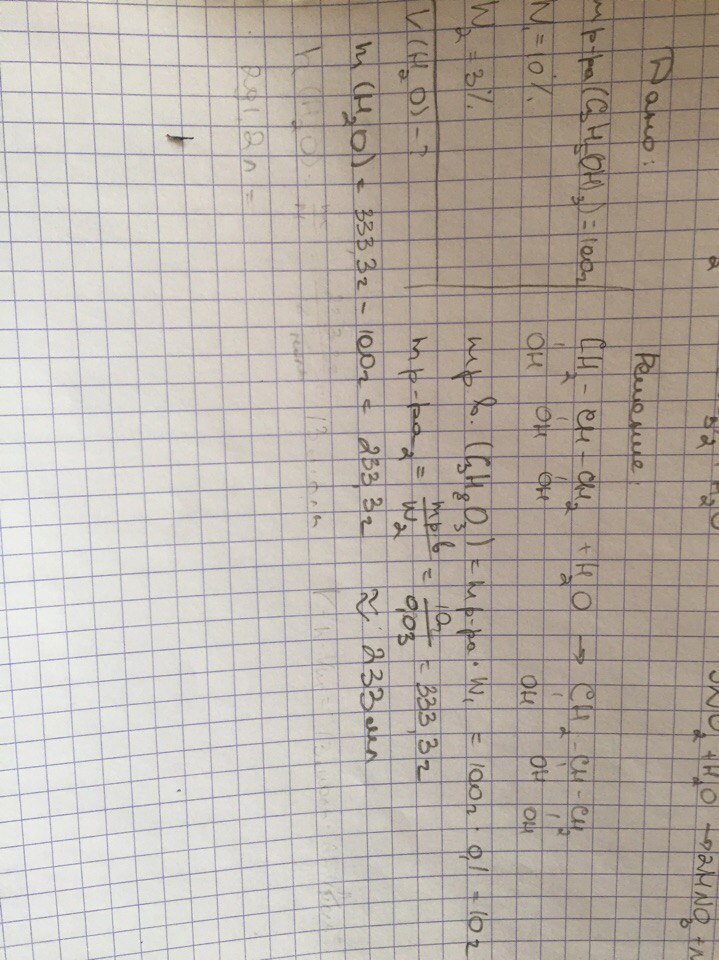 Дано:
mр-ра(C₃H₅OH₃)=100г
W₁=10%
W₂=3%
V(H₂O)-?
Решение.
CH₂-CH-CH₂ + H₂O → CH₂-CH-CH₂
OH OH OH OH OH OH
mр.в.(C₃H₈O₃)=mр-ра·W₁=100г·0,1=10г
mр-ра₂=mрв/W₂=10г/0,03=333,3г
m(H₂O)=333,3г-100г=233,3г ≈ 233мл
291,2л=